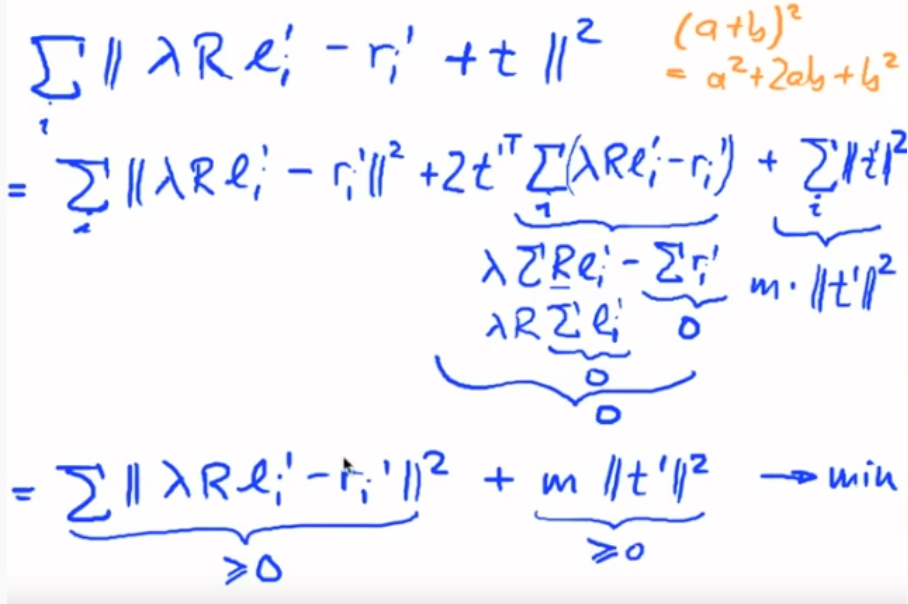 ∑_i ‖ λ R l_i' − r_i' + t ‖²
(a+b)²
= a²+2ab+b²
= ∑_i ‖ λ R l_i' − r_i' ‖² + 2t'ᵀ ∑_i (λ R l_i' − r_i') + ∑_i ‖t'‖²
λ ∑ R l_i' − ∑ r_i'
m · ‖t'‖²
λ R ∑ l_i'
0
0
0
= ∑ ‖ λ R l_i' − r_i' ‖² + m ‖t'‖² → min
≥0
≥0